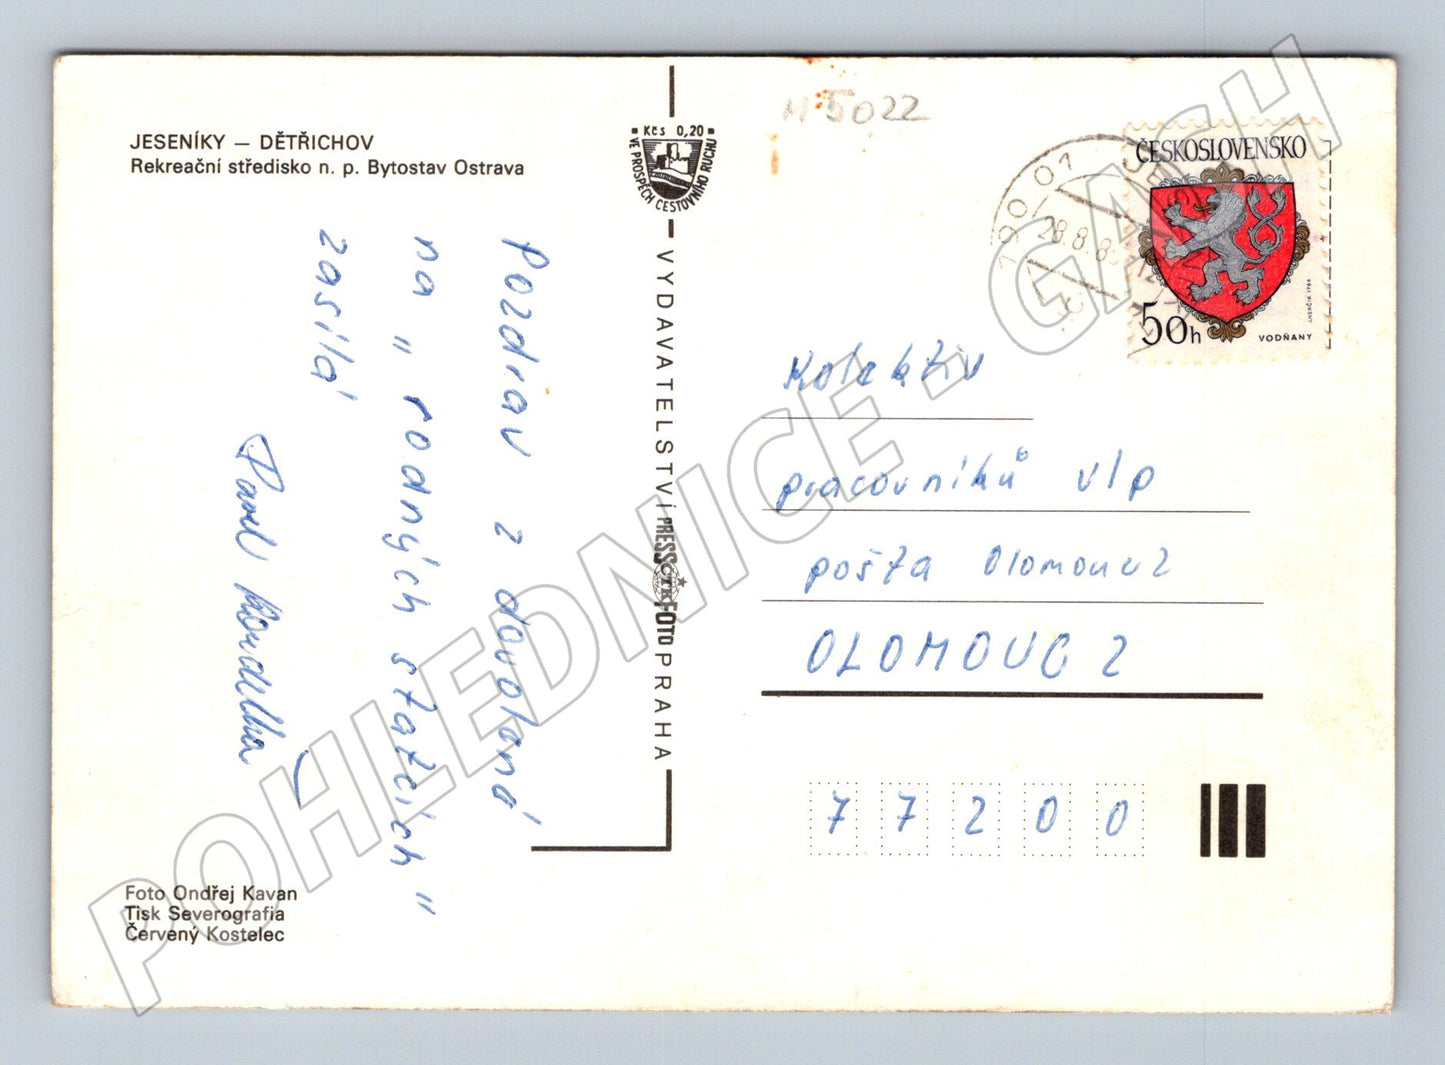 JESENÍKY — DĚTŘICHOV
Rekreační středisko n. p. Bytostav Ostrava
Pozdrav z dovolené
na " rodných statcích "
zasílá
Pavel Koudelka
Foto Ondřej Kavan
Tisk Severografia
Červený Kostelec
Kčs 0,20
VE PROSPĚCH CESTOVNÍHO RUCHU
VYDAVATELSTVÍ PRESSFOTO PRAHA
ČTK
M 5022
790 01
28.8.8
ČESKOSLOVENSKO
50h
VODŇANY
J.HERČÍK 1986
Kolektiv
pracovníků vlp
pošta Olomouc 2
OLOMOUC 2
77200
POHLEDNICE - GASH